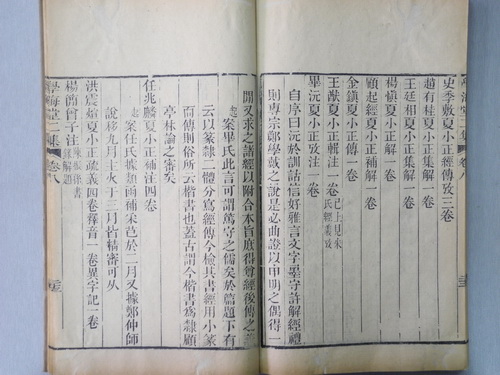 史季敷夏小正經傳攷三卷
趙有桂夏小正集解一卷
王廷相夏小正集解一卷
楊慎夏小正解一卷
顧起經夏小正補解一卷
金鎮夏小正傳一卷
王猷夏小正輯注一卷 已上見朱氏經義攷
畢沅夏小正攷注一卷
自序曰沅於訓詁信好雅言文字墨守許解經禮
則專宗鄭學敚之說是必曲證以申明之偶得一
閒又求之諸經以附合本旨庶得尊經後傳之
案畢氏此言可謂篤守之儒矣於篇題下有
云以篆隸二體分爲經傳今檢其書經用小篆
而傳則俗所云楷書也蓋古謂今楷書爲隸顧
亭林論之審矣
任兆麟夏小正補注四卷
案任氏據
說移九月
大火于三月皆精審可从
洪震煊夏小正疏義四卷釋音一卷異字記一卷
楊簡曾子注
學海堂二集 卷八